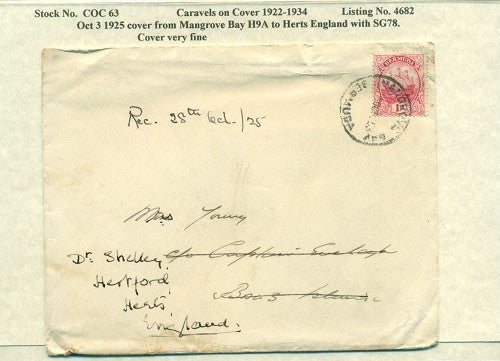 Stock No. COC 63 Caravels on Cover 1922-1934 Listing No. 4682
Oct 3 1925 cover from Mangrove Bay H9A to Herts England with SG78.
Cover very fine
BERMUDA
MANGROVE BAY BERMUDA
Rec. 28th Oct./25
Mrs Young
c/o Captain
Dr. Shelley,
Hertford
Boaz Island
Herts,
England.